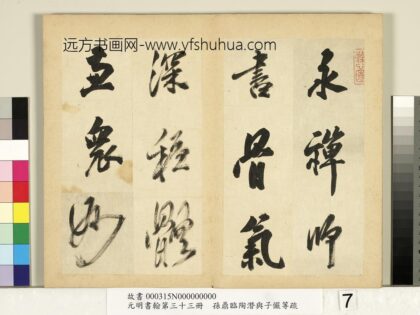 远方书画网-www.yfshuhua.com
永禪師
書骨氣
深穩體
兼衆妙
故書 000315N000000000
元明書翰第三十三冊 孫鼎臨陶潛與子儼等疏
7